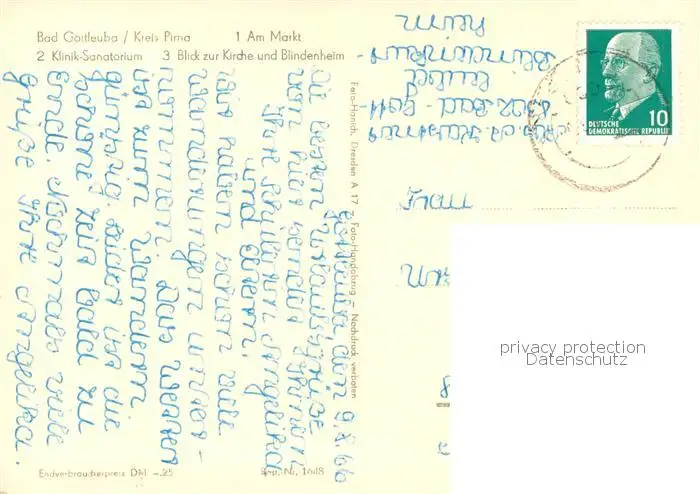 Bad Gottleuba / Kreis Pirna 1 Am Markt
2 Klinik-Sanatorium 3 Blick zur Kirche und Blindenheim
Gottleuba, den 9.8.66
Die besten Urlaubsgrüße
von hier sendet Ihnen
Ihre Schülerin Angelika
und Eltern.
Wir haben schon viele
Wanderungen unter-
nommen. Das Wetter
ist zum Wandern
günstig. Leider ist die
schöne Zeit bald zu
Ende. Nochmals viele
Grüße Ihre Angelika.
Foto-Hanich, Dresden A 17 – Foto-Handabzug – Nachdruck verboten
Endverbraucherpreis DM –.25
Best.-Nr. 1648
heim
leuba
Frau
DEUTSCHE
DEMOKRATISCHE REPUBLIK
10
privacy protection
Datenschutz